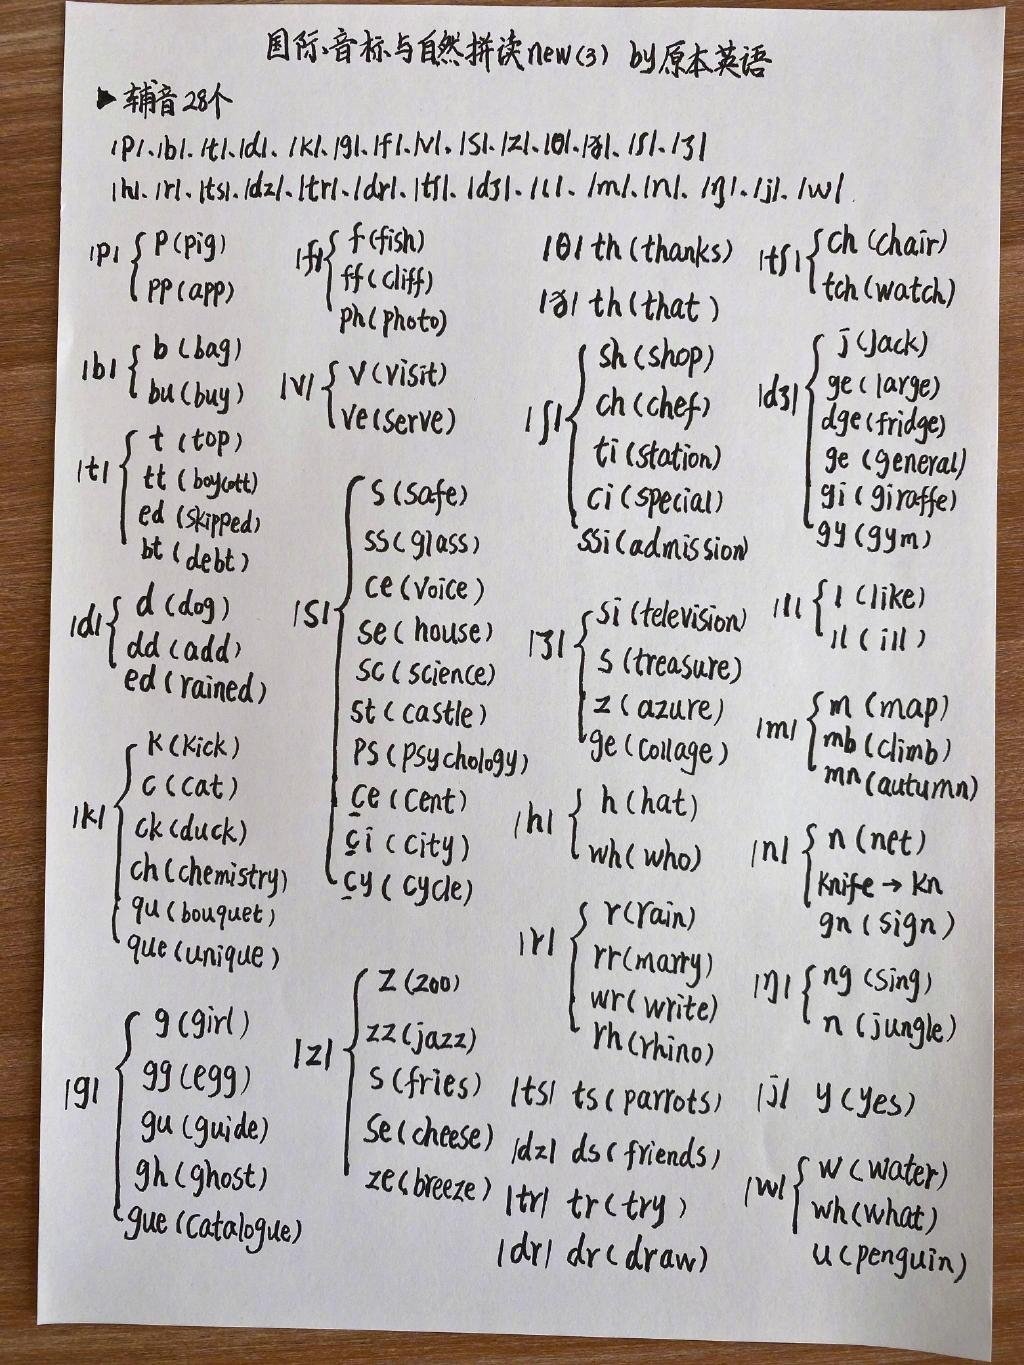 国际音标与自然拼读new(3) by原本英语
▶ 辅音28个
/p/、/b/、/t/、/d/、/k/、/g/、/f/、/v/、/s/、/z/、/θ/、/ð/、/ʃ/、/ʒ/
/h/、/r/、/ts/、/dz/、/tr/、/dr/、/tʃ/、/dʒ/、/l/、/m/、/n/、/ŋ/、/j/、/w/
/p/
p (pig)
pp (app)
/b/
b (bag)
bu (buy)
/t/
t (top)
tt (boycott)
ed (skipped)
bt (debt)
/d/
d (dog)
dd (add)
ed (rained)
/k/
k (kick)
c (cat)
ck (duck)
ch (chemistry)
qu (bouquet)
que (unique)
/g/
g (girl)
gg (egg)
gu (guide)
gh (ghost)
gue (catalogue)
/f/
f (fish)
ff (cliff)
ph (photo)
/v/
v (visit)
ve (serve)
/s/
s (safe)
ss (glass)
ce (voice)
se (house)
sc (science)
st (castle)
ps (psychology)
ce (cent)
ci (city)
cy (cycle)
/z/
z (zoo)
zz (jazz)
s (fries)
se (cheese)
ze (breeze)
/θ/ th (thanks)
/ð/ th (that)
/ʃ/
sh (shop)
ch (chef)
ti (station)
ci (special)
ssi (admission)
/ʒ/
si (television)
s (treasure)
z (azure)
ge (collage)
/h/
h (hat)
wh (who)
/r/
r (rain)
rr (marry)
wr (write)
rh (rhino)
/ts/ ts (parrots)
/dz/ ds (friends)
/tr/ tr (try)
/dr/ dr (draw)
/tʃ/
ch (chair)
tch (watch)
/dʒ/
j (Jack)
ge (large)
dge (fridge)
ge (general)
gi (giraffe)
gy (gym)
/l/
l (like)
ll (ill)
/m/
m (map)
mb (climb)
mn (autumn)
/n/
n (net)
knife → kn
gn (sign)
/ŋ/
ng (sing)
n (jungle)
/j/ y (yes)
/w/
w (water)
wh (what)
u (penguin)